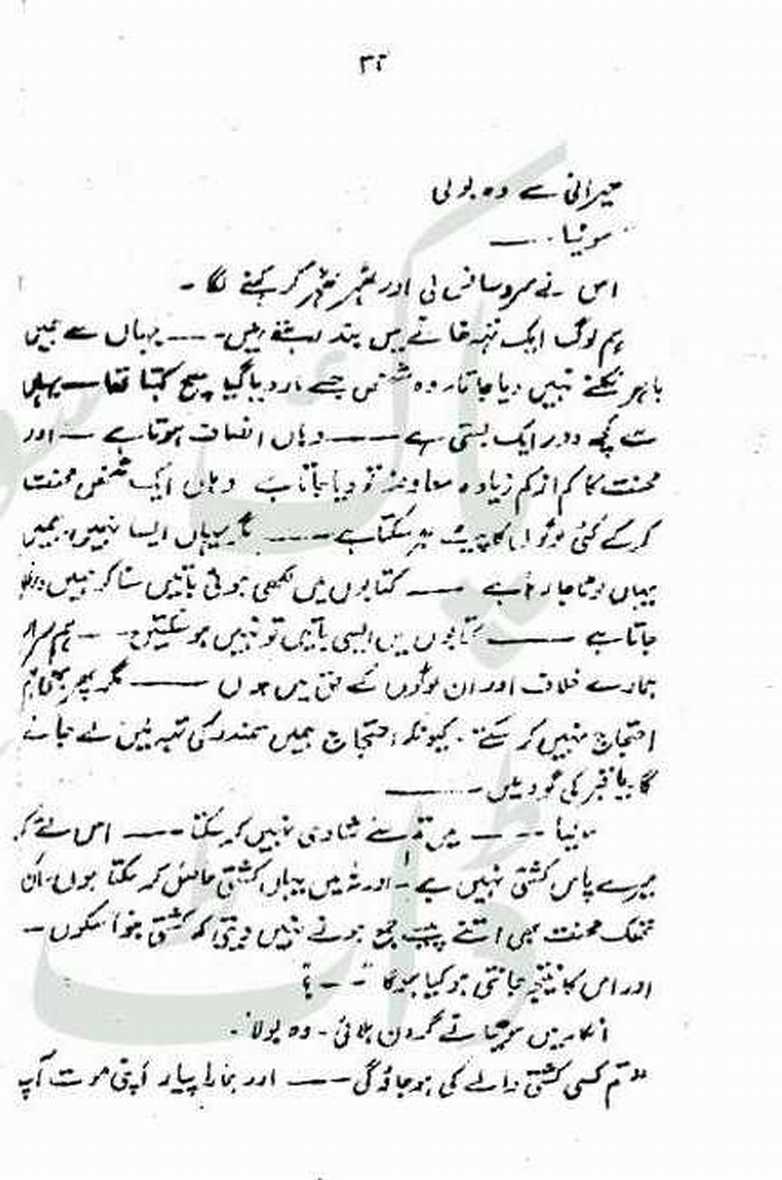 ۳۲
حیرانی سے وہ بولی
سونیا۔۔۔
اس نے سرد سانس لی اور ٹھہر ٹھہر کر کہنے لگا۔
ہم لوگ ایک تہہ خانے میں بند رہتے ہیں۔۔۔ یہاں سے ہمیں
باہر نکلنے نہیں دیا جاتا، وہ شخص جسے مار دیا گیا سچ کہتا تھا۔ یہاں
سے کچھ دور ایک بستی ہے۔۔۔ وہاں انصاف ہوتا ہے۔ اور
محنت کا کم از کم زیادہ معاوضہ تو دیا جاتا ہے وہاں ایک شخص محنت
کر کے کئی لوگوں کا پیٹ بھر سکتا ہے۔۔۔ مگر یہاں ایسا نہیں، ہمیں
یہاں لوٹا جا رہا ہے ۔۔۔ کتابوں میں لکھی ہوئی باتیں سنا کر ہمیں
جاتا ہے ۔۔۔ کتابوں میں ایسی باتیں تو نہیں ہو سکتیں۔۔۔
ہمارے خلاف اور ان لوگوں کے حق میں ہوں ۔۔۔ مگر پھر بھی ہم
احتجاج نہیں کر سکتے۔ کیونکہ احتجاج ہمیں سمندر کی تہہ میں لے جائے
گا۔ یا قبر کی گود میں۔۔۔
سونیا ۔۔۔ میں تم سے شادی نہیں کر سکتا ۔۔۔ اس لئے کہ
میرے پاس کشتی نہیں ہے۔ اور نہ میں یہاں کشتی حاصل کر سکتا ہوں۔ ان
تھک محنت بھی اتنے پیسے جمع ہونے نہیں دیتی کہ کشتی بنوا سکوں۔
اور اس کا نتیجہ جانتی ہو کیا ہو گا"۔۔؟
انکار میں سونیا نے گردن ہلائی۔ وہ بولا۔
"تم کسی کشتی والے کی ہو جاؤ گی۔۔۔ اور ہمارا پیار اپنی موت آپ